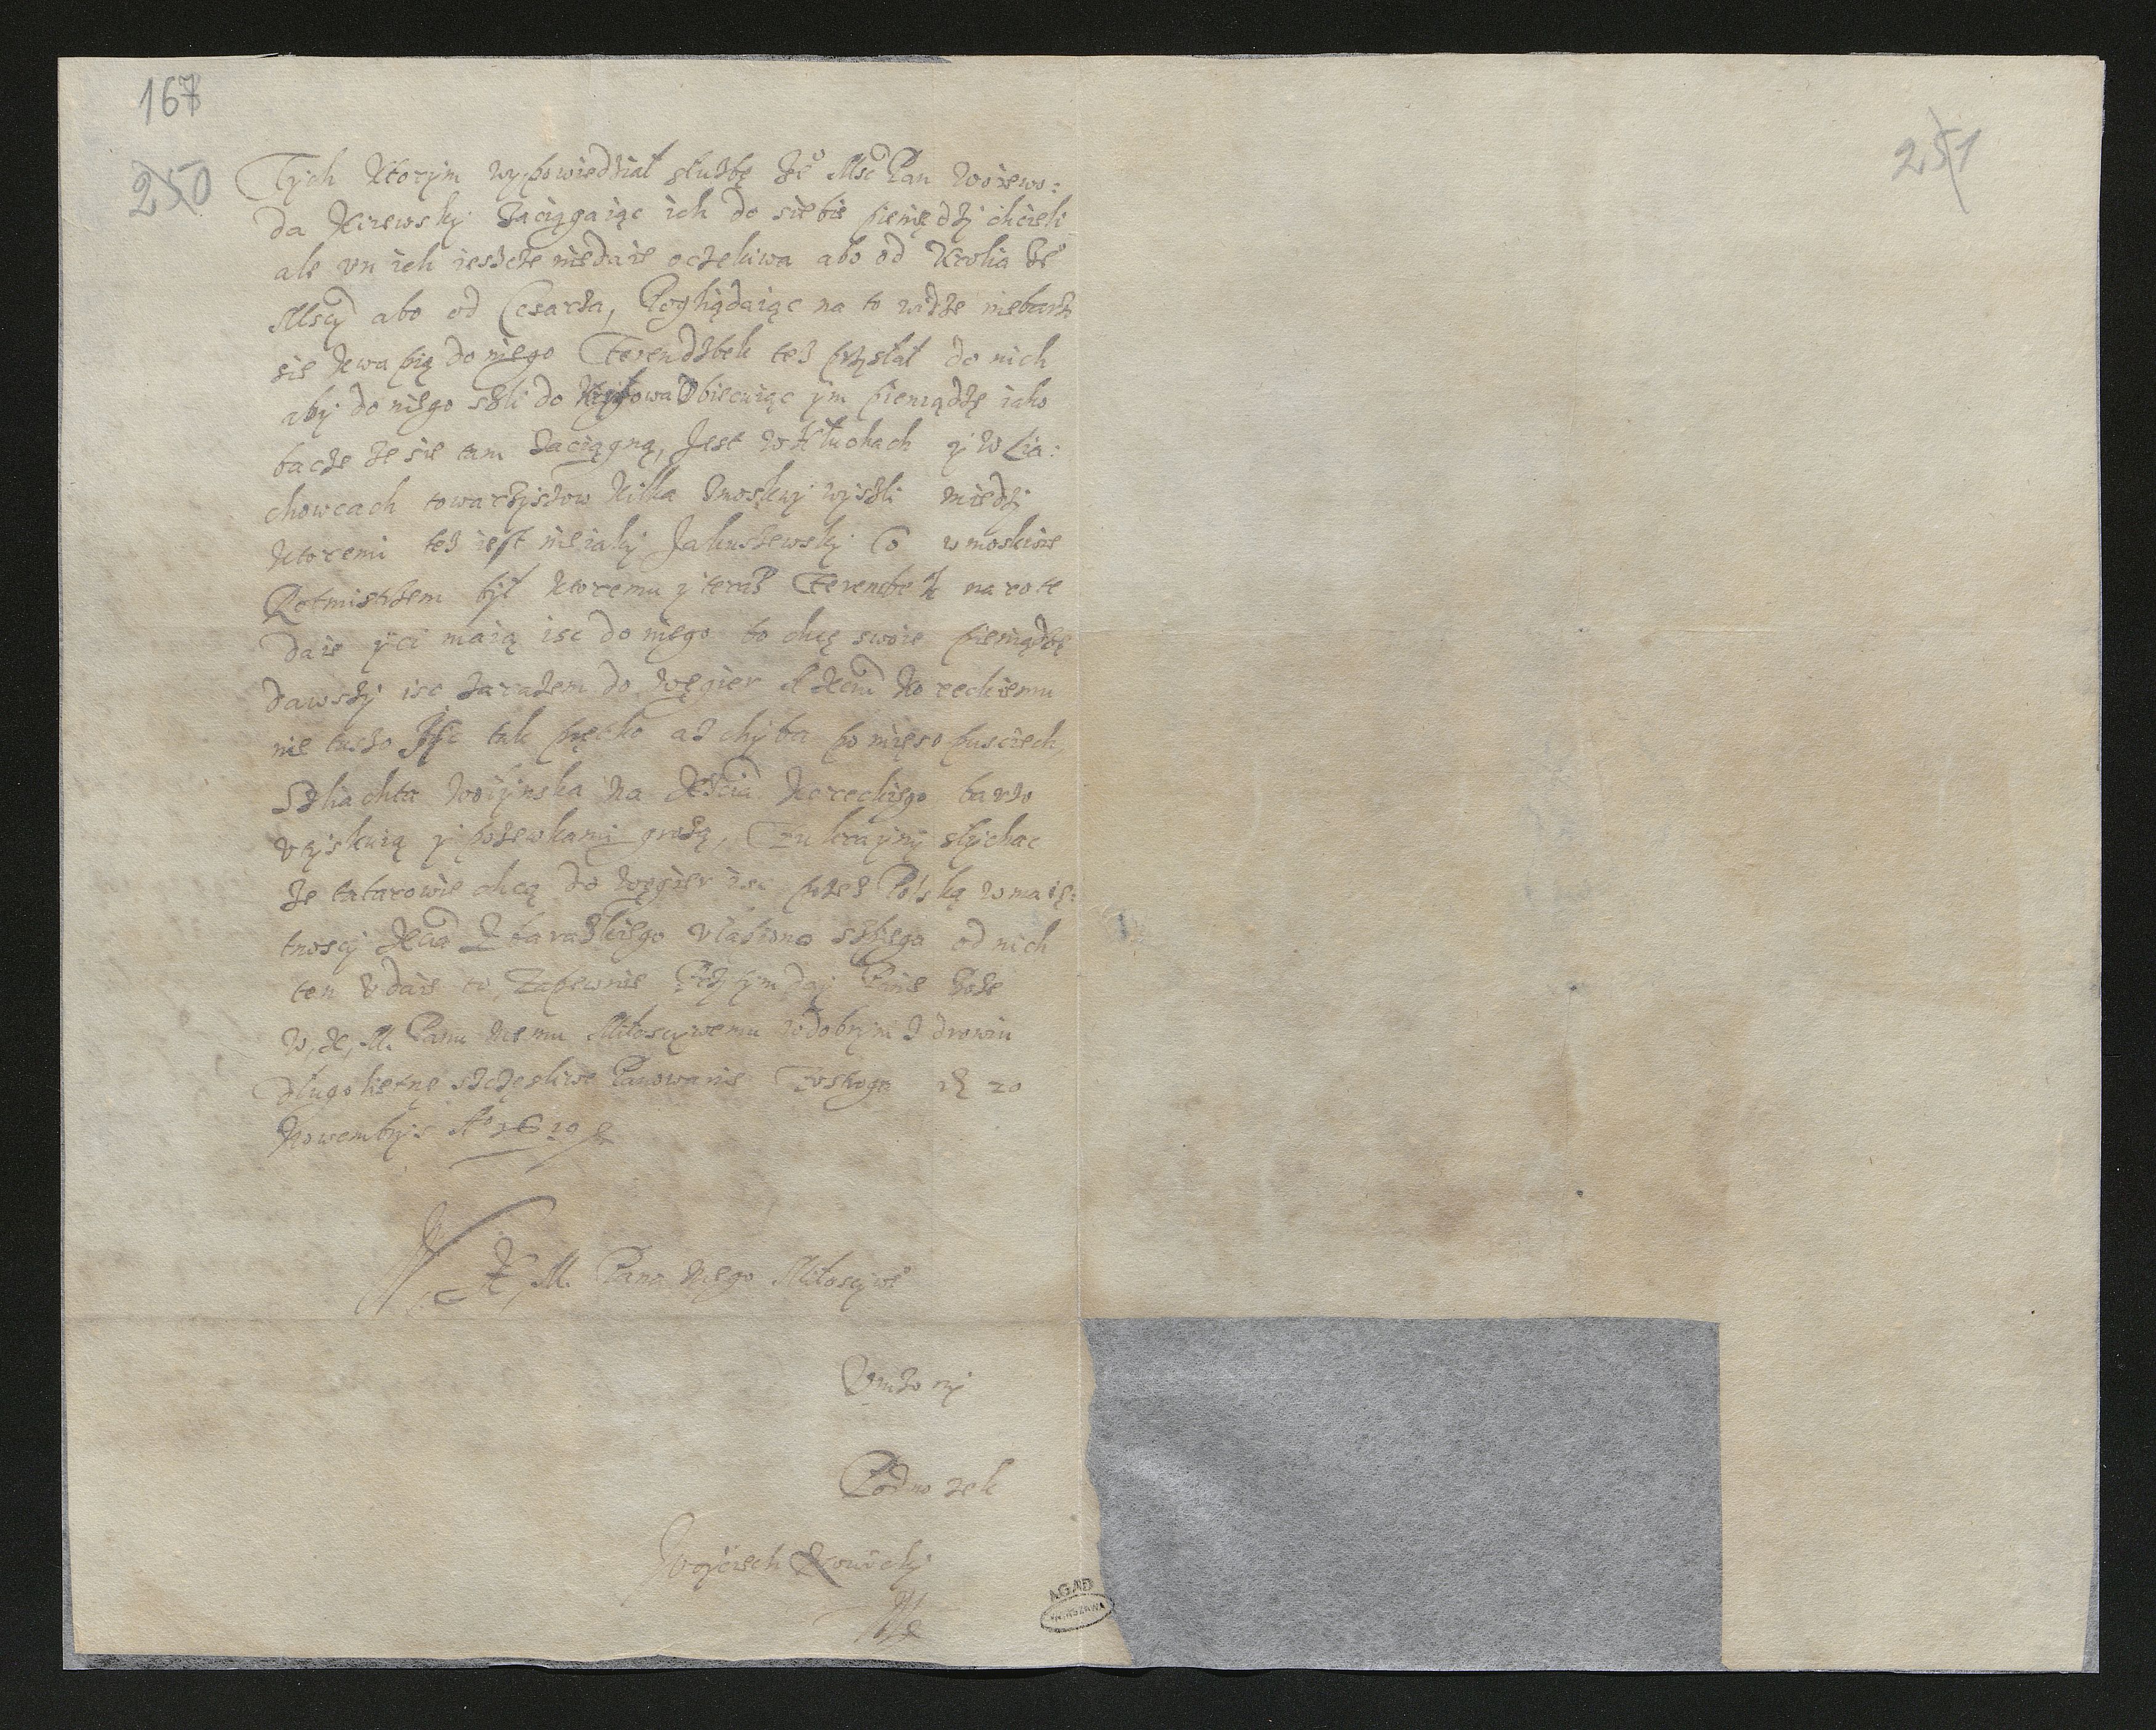 167
250
251
Tych ktorym wypowiedział służbę Je° Msć Pan Woiewo:
da Kiiewsky zaciągaiąc ich do siebie pieniędzy chcieli
ale vn ich iescze niedaie oczekiwa abo od Krolia Je°
Mscy abo od Cesarza, Poglądaiąc na to widzę niebarzo
sie kwapią do niego Ferendzbek tesz przysłał do nich
aby do niego szli do obiecuiąc ym pieniądzę iako
bacze ze sie tam zaciągną, Jest w Kłuchach y w Lia:
chowcach towarzyszow kilka zmoskwy wyszli miedzy
ktoremi tesz iest nieiaky Jakuszewsky co w moskwie
Rotmistrzem był ktoremu y teraz Ferenbek na rote
daie y ci maią isc do niego to chcę swoie pieniądzę
dawszy isc zarazem do Węgier A Xciu Koreckiemu
nie tuszo Jsc tak prętko asz chyba po mięsopusciech,
Szliachta Wołynska na Xcia Koreckiego barzo
vtyskuią y pozewkami grożą, Z vkrayny słychac
ze tatarowie chcą do Węgier isc przez Polską w maię:
tnoscy Xcia Zbaraskiego vłapiono szpiega od nich
ten vdaie to, Zapewnie Przytym day Panie Boże
W, X, M. Panu memu Miłosciwemu w dobrym zdrowiu
długo lietnę szczęsliwe Panowanie Zostroga 20
Nowembrys A° 1619
W, X, M. Pana mego Miłosciwe°
Vnizony
Podnozek
Woyciech
AGAD
WARSZAWA